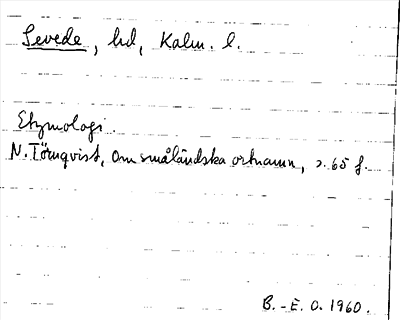 Sevede, hd, Kalm. l.
Etymologi.
N. Törnqvist, Om småländska ortnamn, s. 65 f.
B.-E. O. 1960.